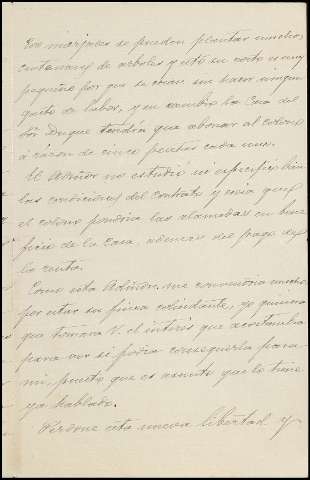 Sus margenes se pueden plantar muchos
centenares de arboles y esto su costo es muy
pequeño por que se crian sin hacer ningun
gasto de labor, y en cambio la Casa del
Sor Duque tendria que abonar al colono
á razon de cinco pesetas cada uno.
El Admor no estudió ni especificó bien
las condiciones del Contrato y creia que
el colono pondria las alamedas en bene
ficio de la Casa, ademas del pago de
la renta.
Como esta me convendria mucho
por estar su finca colindante, yo quisiera
que tomara V. el interés que acostumbra
para ver si podia conseguirla para
mi, puesto que es asunto que lo tiene
ya hablado.
Perdone esta nueva libertad y